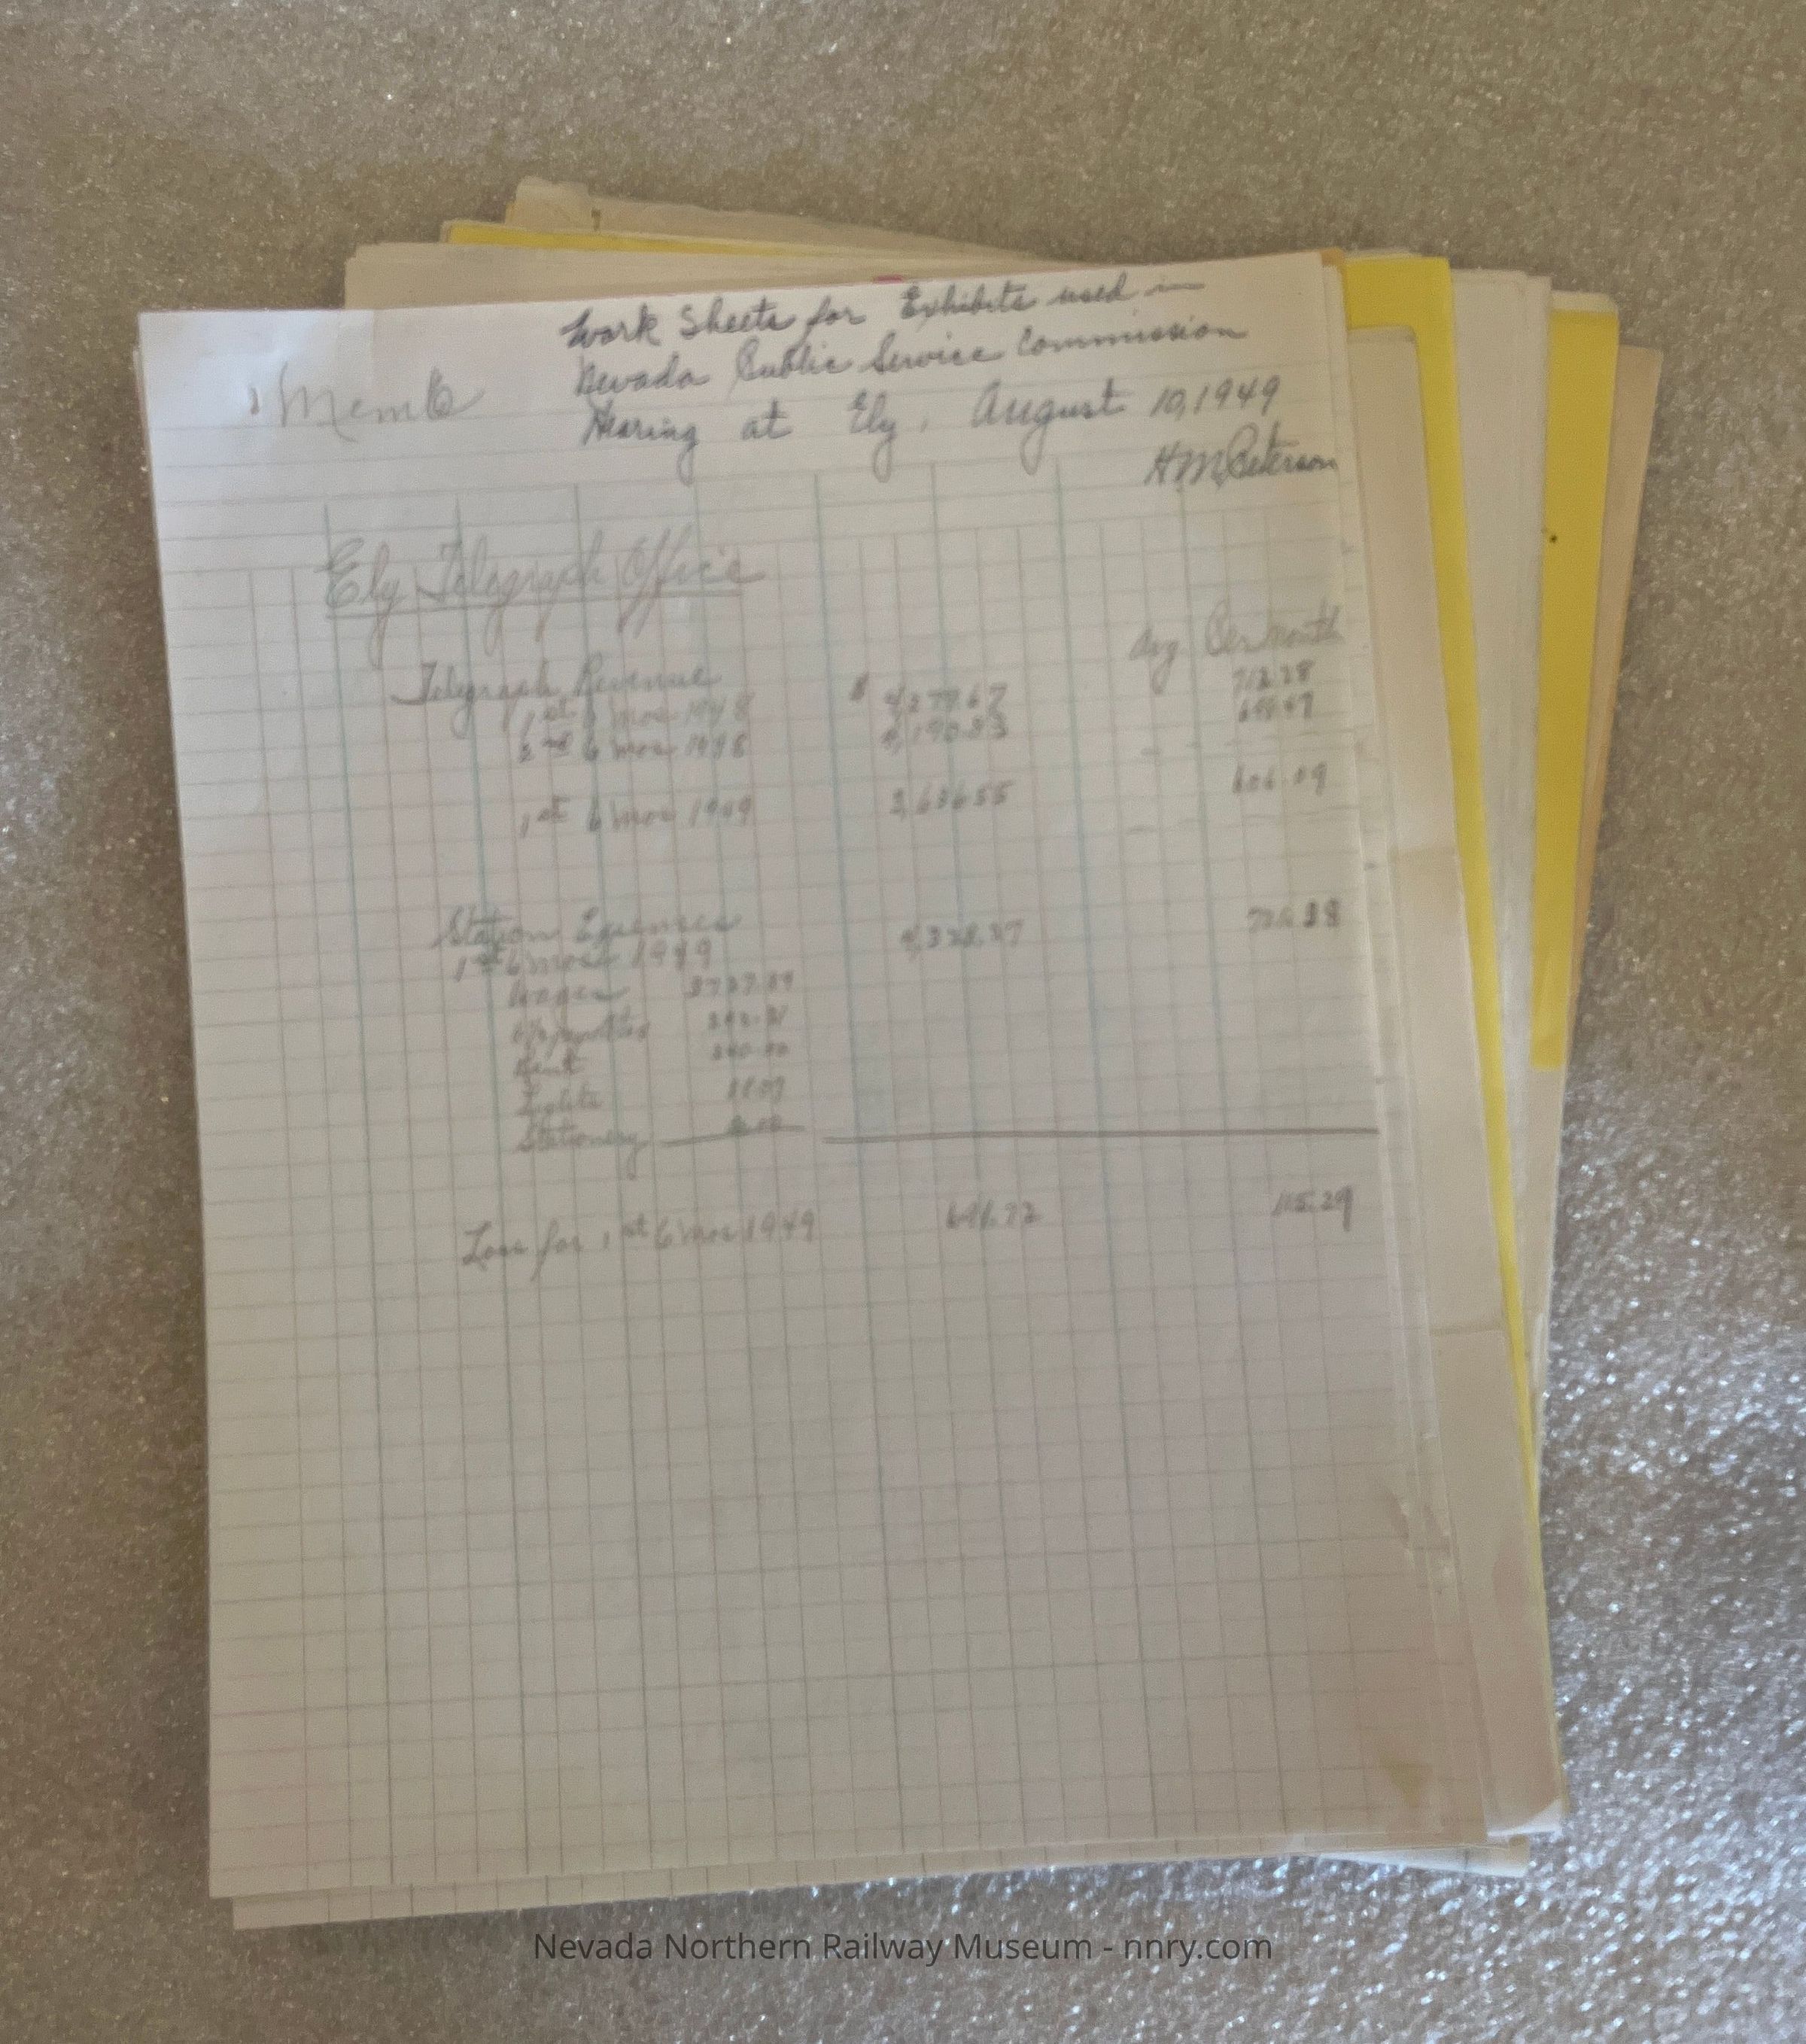 Work Sheets for Exhibits used in
Nevada Public Service Commission
Memo
Hearing at Ely, August 10, 1949
HM Peterson
Ely Telegraph Office
Avg Per Month
Telegraph Revenue
1st 6 mos 1948 $ 4,279.67 713.28
2nd 6 mos 1948 4,190.83 698.47
1st 6 mos 1949 3,636.55 606.09
Station Expenses
1st 6 mos 1949 4,328.27 721.38
Wages 3727.89
242.31
Rent
Lights
Stationery
Loss for 1st 6 mos 1949 691.72 115.29
Nevada Northern Railway Museum - nnry.com